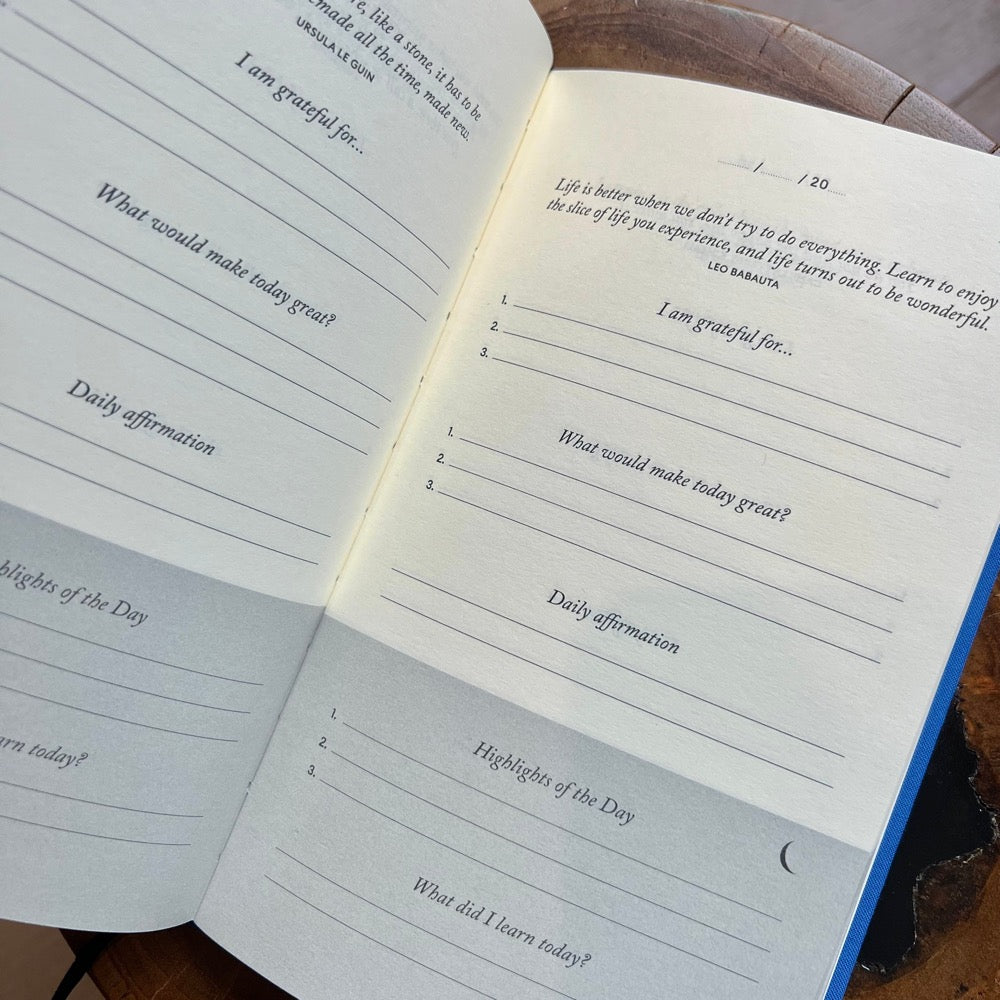 like a stone, it has to be
made all the time, made new.
URSULA LE GUIN
I am grateful for...
What would make today great?
Daily affirmation
of the Day
today?
/ / 20
Life is better when we don't try to do everything. Learn to enjoy
the slice of life you experience, and life turns out to be wonderful.
LEO BABAUTA
I am grateful for...
1.
2.
3.
What would make today great?
1.
2.
3.
Daily affirmation
Highlights of the Day
1.
2.
3.
What did I learn today?